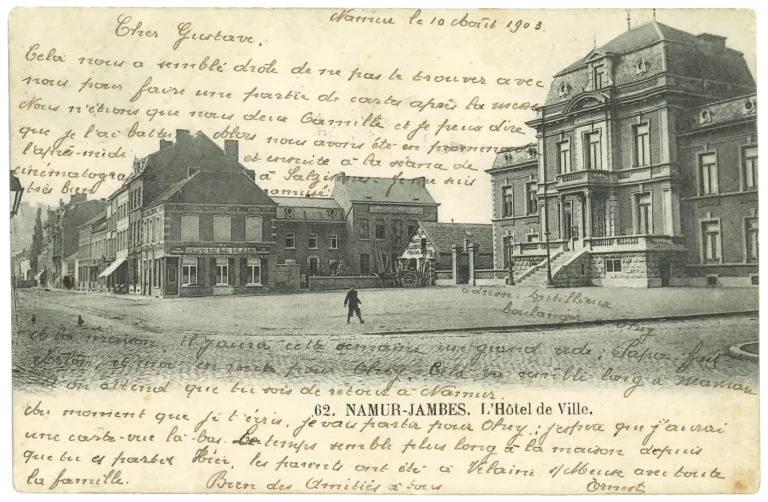 Namur le 10 Août 1903
Cher Gustave,
Cela nous a semblé drôle de ne pas te trouver avec
nous pour faire une partie de carts après la messe
Nous n'étions que nous deux Camille et je peux dire
que je l'ai battu. Alors nous avons été en promenade
l'après-midi et ensuite à la séance de
cinématogra à Salzinnes. Je me suis
très bien amusé
CAFÉ DE LA PLACE
boulanger Ohey
à la maison. Il y aura cette semaine un grand vide; Papa fait
et moi en route pour Ohey. Cela va semblé long à maman
et on attend que tu sois de retour à Namur.
62. NAMUR-JAMBES. L'Hôtel de Ville.
du moment que je t'écris, je vais partir pour Ohey; j'espère que j'aurai
une carte-vue là-bas. Le temps semble plus long à la maison depuis
que tu es partis. Hier, les parents ont été à Velaine s/Meuse avec toute
la famille. Bien des Amitiés à tous Ernest